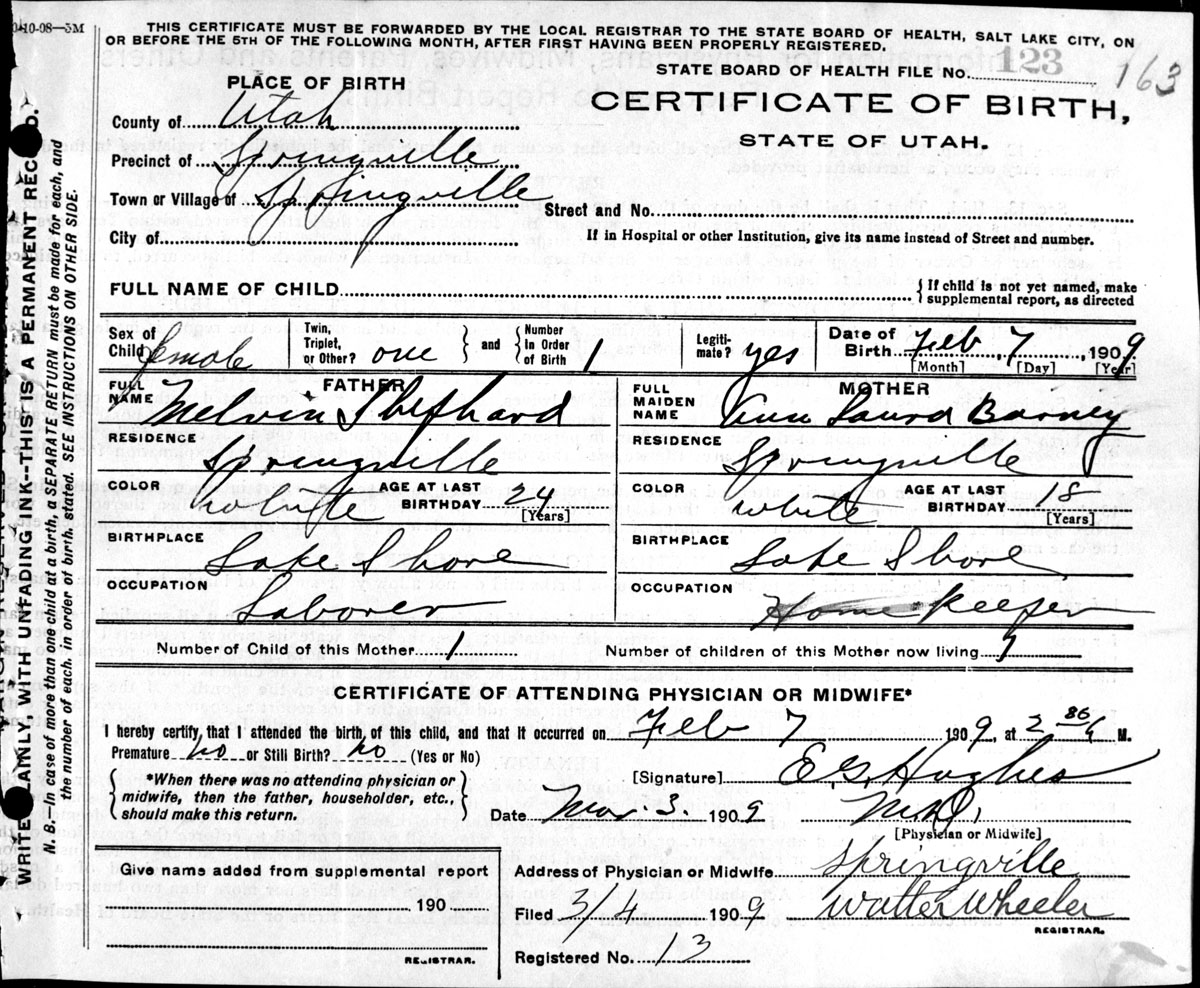 0-10-08—5M
THIS CERTIFICATE MUST BE FORWARDED BY THE LOCAL REGISTRAR TO THE STATE BOARD OF HEALTH, SALT LAKE CITY, ON
OR BEFORE THE 5TH OF THE FOLLOWING MONTH, AFTER FIRST HAVING BEEN PROPERLY REGISTERED.
STATE BOARD OF HEALTH FILE No. 123 163
PLACE OF BIRTH
CERTIFICATE OF BIRTH,
STATE OF UTAH.
County of Utah
Precinct of Springville
Town or Village of Springville
Street and No.
City of
If in Hospital or other Institution, give its name instead of Street and number.
FULL NAME OF CHILD
If child is not yet named, make
supplemental report, as directed
Sex of Child female
Twin, Triplet, or Other? one
and
Number In Order of Birth 1
Legitimate? yes
Date of Birth Feb 7 1909
[Month] [Day] [Year]
FATHER
FULL NAME Melvin Shephard
MOTHER
FULL MAIDEN NAME Ann Laura Barney
RESIDENCE Springville
RESIDENCE Springville
COLOR White AGE AT LAST BIRTHDAY 24 [Years]
COLOR White AGE AT LAST BIRTHDAY 18 [Years]
BIRTHPLACE Lake Shore
BIRTHPLACE Lake Shore
OCCUPATION Laborer
OCCUPATION Home keeper
Number of Child of this Mother 1
Number of children of this Mother now living 1
CERTIFICATE OF ATTENDING PHYSICIAN OR MIDWIFE*
I hereby certify, that I attended the birth of this child, and that it occurred on Feb 7 1909, at 2 M.
Premature no or Still Birth? no (Yes or No)
*When there was no attending physician or
midwife, then the father, householder, etc.,
should make this return.
[Signature] E G Hughes
Date Mar. 3. 1909 M.D.
[Physician or Midwife]
Give name added from supplemental report
190
REGISTRAR.
Address of Physician or Midwife Springville
Filed 3/4 1909 Walter Wheeler
REGISTRAR.
Registered No. 13
WRITE PLAINLY, WITH UNFADING INK--THIS IS A PERMANENT RECORD.
N. B.—In case of more than one child at a birth, a SEPARATE RETURN must be made for each, and
the number of each, in order of birth, stated. SEE INSTRUCTIONS ON OTHER SIDE.